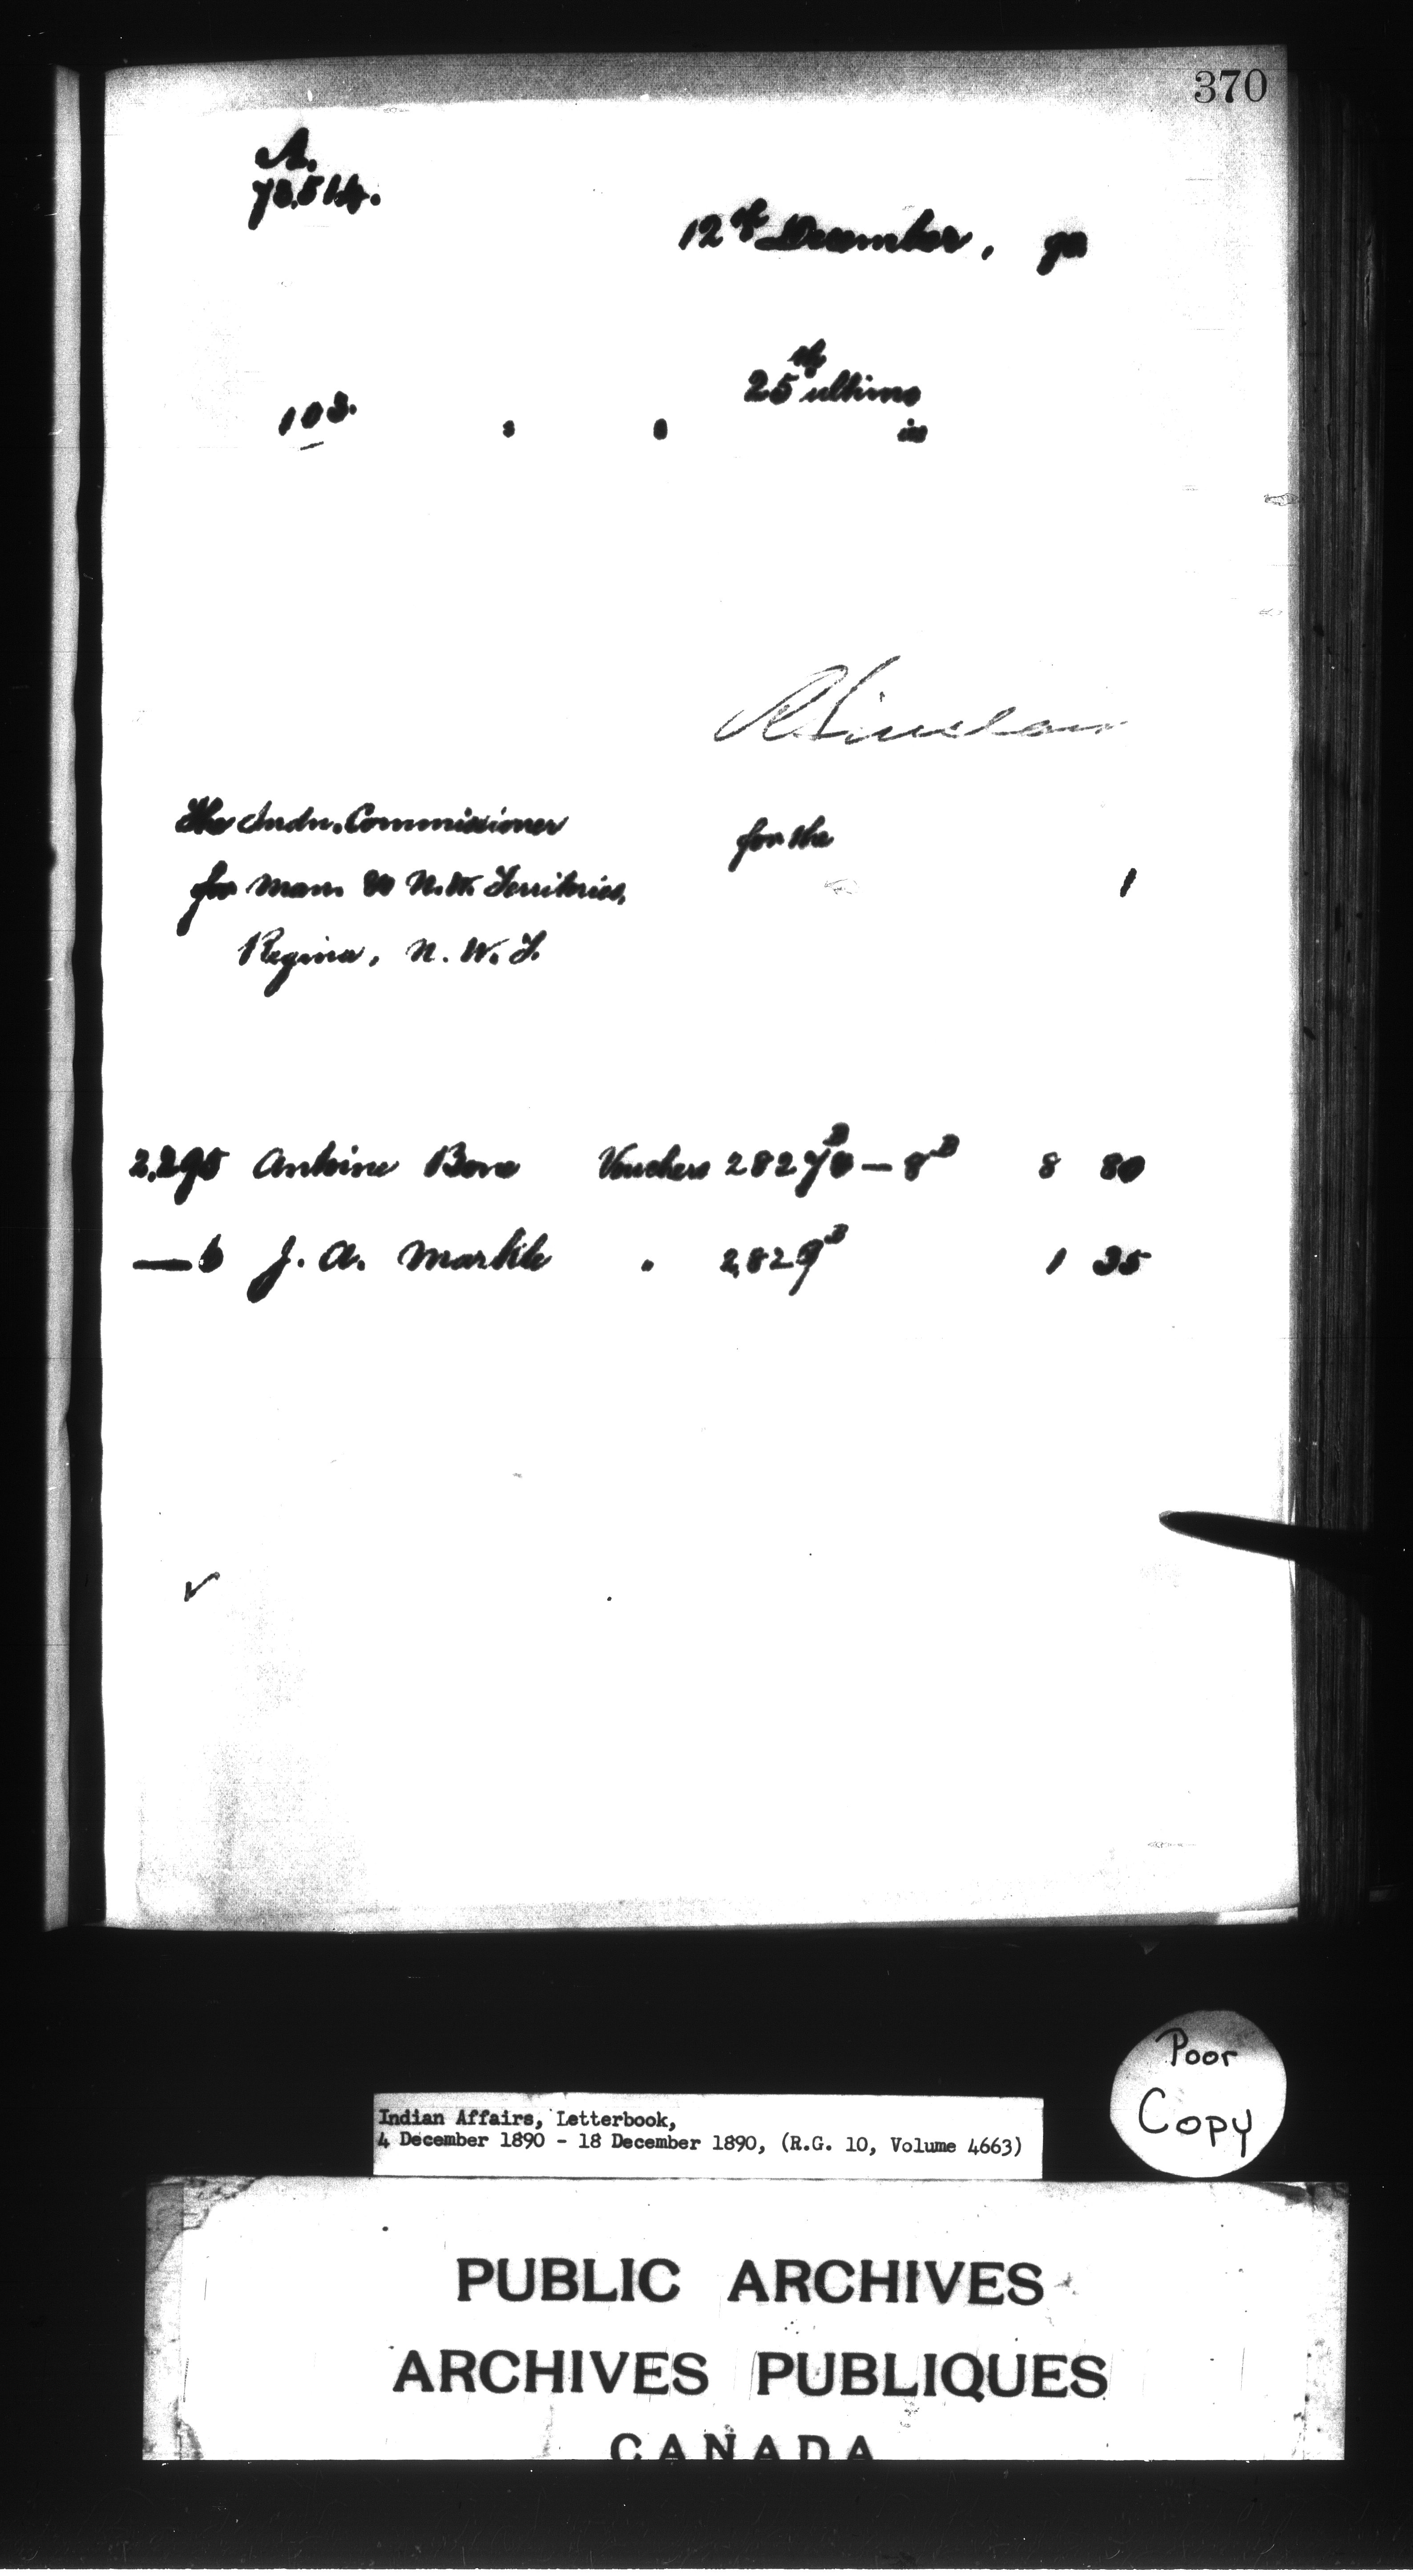 370
A.
73.514.
12th December, 90
25th ultimo
103.
in
R Sinclair
The Indn. Commissioner
for the
for Man. & N.W. Territories,
1
Regina, N. W. T.
2,295 Antoine Bone Vouchers 2827B — 8B 8 80
— 6 J. A. Markle " 2,829B 1 35
Poor
Copy
Indian Affairs, Letterbook,
4 December 1890 - 18 December 1890, (R.G. 10, Volume 4663)
PUBLIC ARCHIVES
ARCHIVES PUBLIQUES
CANADA